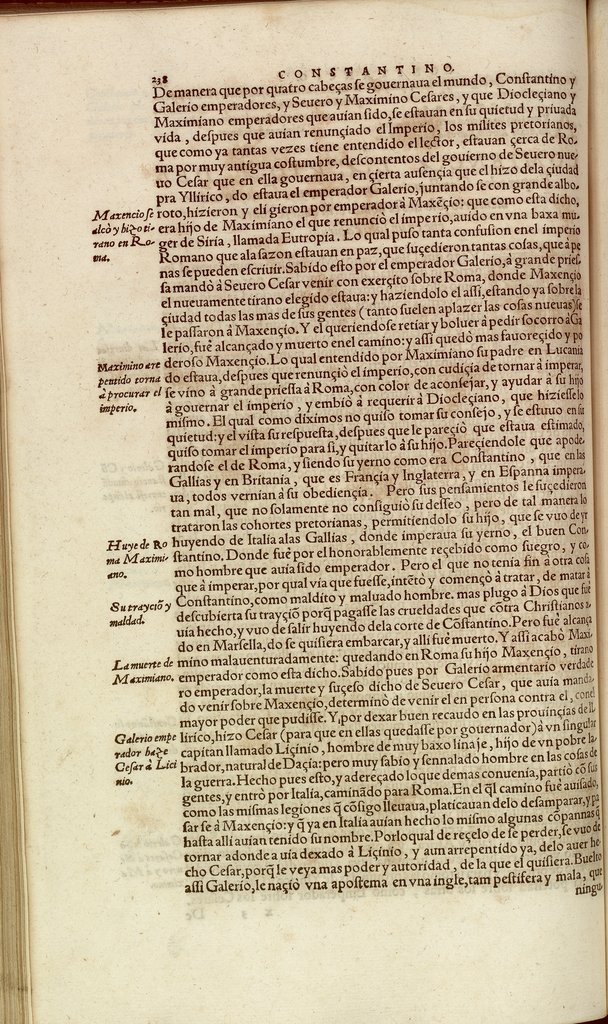 238
CONSTANTINO.
De manera que por quatro cabeças se gouernaua el mundo, Constantino y
Galerio emperadores, y Seuero y Maximino Cesares, y que Diocleçiano y
Maximiano emperadores que auían sido, se estauan en su quietud y priuada
vida, despues que auían renunçiado el Imperío, los milites pretorianos,
que como ya tantas vezes tiene entendido el lector, estauan çerca de Ro-
ma por muy antigua costumbre, descontentos del gouierno de Seuero nue-
uo Cesar que en ella gouernaua, en çierta ausençia que el hizo dela çiudad
pra Yllírico, do estaua el emperador Galerio, juntando se con grande albo-
Maxencio se
alcò y hizo ti-
rano en Ro-
ma.
roto, hízieron y eligieron por emperador à Maxẽçio: que como esta dicho,
era hijo de Maximíano el que renunciò el imperío, auído en vna baxa mu-
ger de Siría, llamada Eutropía. Lo qual puso tanta confusion enel imperío
Romano que ala sazon estauan en paz, que suçedieron tantas cosas, que à pe
nas se pueden escriuir. Sabido esto por el emperador Galerío, à grande pries-
sa mandò à Seuero Cesar venir con exerçito sobre Roma, donde Maxençio
el nueuamente tirano elegido estaua: y hazíendolo el assi, estando ya sobre la
çiudad todas las mas de sus gentes (tanto suelen aplazer las cosas nueuas) se
le passaron à Maxençio. Y el queriendo se retiar y boluer à pedir socorro à Ga
lerío, fuè alcançado y muerto enel camino: y assi quedò mas fauoreçido y po
Maximino arre
pentido torna
à procurar el
imperio.
deroso Maxençio. Lo qual entendido por Maximíano su padre en Lucanía
do estaua, despues que renunçiò el imperío, con cudiçia de tornar à imperar,
se víno à grande priessa à Roma, con color de aconsejar, y ayudar à su hijo
à gouernar el imperío, y embiò à requerir à Diocleçiano, que híziesse lo
mismo. El qual como díximos no quiso tomar su consejo, y se estuuo en su
quietud: y el vista su respuesta, despues que le pareçiò que estaua estimado,
quiso tomar el imperío para si, y quitar lo à su hijo. Pareçiendole que apode-
randose el de Roma, y siendo su yerno como era Constantino, que en las
Gallías y en Britanía, que es Françia y Inglaterra, y en Espanna impera-
ua, todos vernían à su obediençia. Pero sus pensamientos le suçedieron
tan mal, que no solamente no consiguiò su desseo, pero de tal manera lo
trataron las cohortes pretorianas, permitiendolo su hijo, que se vuo de yr
Huye de Ro
ma Maximi-
ano.
huyendo de Italía alas Gallías, donde imperaua su yerno, el buen Con-
stantino. Donde fuè por el honorablemente reçebido como suegro, y co-
mo hombre que auía sido emperador. Pero el que no tenía fin à otra cosa
que à imperar, por qual vía que fuesse, intẽtò y començò à tratar, de matar à
Su trayciõ y
maldad.
Constantino, como maldito y maluado hombre. mas plugo à Dios que fuè
descubierta su trayçiõ porq̃ pagasse las crueldades que cõtra Christíanos a-
uía hecho, y vuo de salir huyendo dela corte de Cõstantino. Pero fuè alcança
do en Marsella, do se quisiera embarcar, y alli fuè muerto. Y assi acabò Maxi-
La muerte de
Maximiano.
mino malauenturadamente: quedando en Roma su hijo Maxençio, tirano
emperador como esta dicho. Sabido pues por Galerío armentario verdade
ro emperador, la muerte y suçeso dicho de Seuero Cesar, que auía manda-
do venir sobre Maxençio, determinò de venir el en persona contra el, conel
mayor poder que pudisse. Y por dexar buen recaudo en las prouinçias de Il-
Galerio empe
rador haze
Cesar à Lici
nio.
lírico, hizo Cesar (para que en ellas quedasse por gouernador) à vn singular
capitan llamado Liçinío, hombre de muy baxo linaje, hijo de vn pobre la-
brador, natural de Daçía: pero muy sabio y sennalado hombre en las cosas de
la guerra. Hecho pues esto, y adereçado lo que demas conuenía, partiò cõ sus
gentes, y entrò por Italía, caminãdo para Roma. En el q̃l camino fuè auisado,
como las mismas legiones q̃ cõsigo lleuaua, platicauan delo desamparar, y pa
sar se à Maxençio: y q̃ ya en Italía auían hecho lo mismo algunas cõpannas q̃
hasta alli auían tenido su nombre. Por lo qual de reçelo de se perder, se vuo de
tornar adonde auía dexado à Liçinío, y aun arrepentido ya, delo auer he-
cho Cesar, porq̃ le veya mas poder y autoridad, de la que el quisiera. Buelto
assi Galerío, le naçiò vna apostema en vna ingle, tam pestifera y mala, que
ningu-